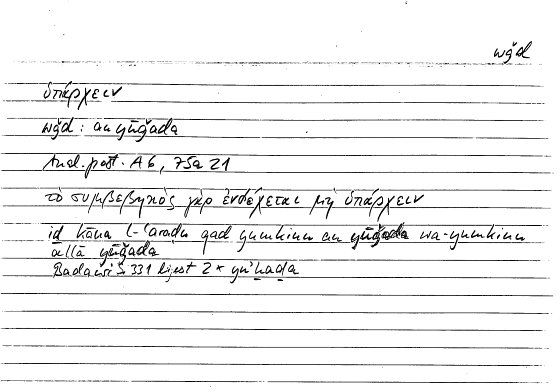 wǧd
ὑπάρχειν
wǧd : an yūǧada
Anal. post. A 6, 75a 21
τὸ συμβεβηκὸς γὰρ ἐνδέχεται μὴ ὑπάρχειν
iḏ kāna l-ʿaraḍu qad yumkinu an yūǧada wa-yumkinu
allā yūǧada
Badawi S 331 liest 2 × yuʾḫaḏa